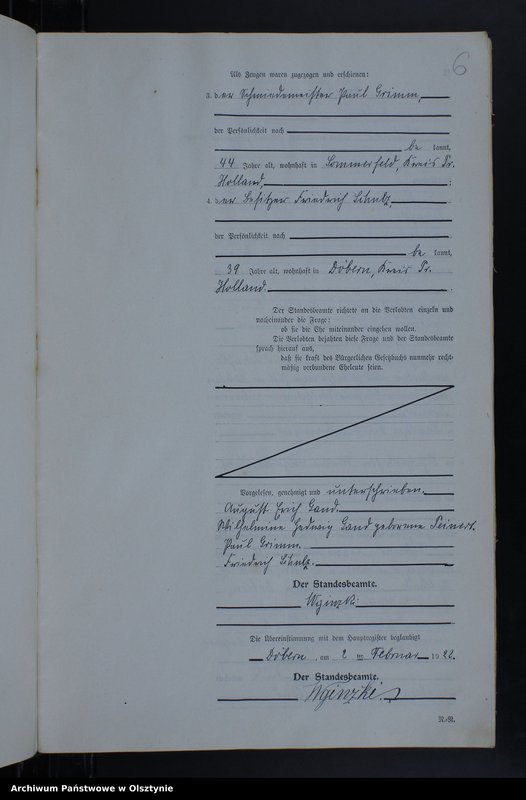 6
Als Zeugen waren zugezogen und erschienen:
3. der Schmiedemeister Paul Grimm,
der Persönlichkeit nach
be kannt,
44 Jahre alt, wohnhaft in Sommerfeld, Kreis Pr.
Holland, ;
4. der Besitzer Friedrich Schulz,
der Persönlichkeit nach
be kannt,
39 Jahre alt, wohnhaft in Döbern, Kreis Pr.
Holland.
Der Standesbeamte richtete an die Verlobten einzeln und
nacheinander die Frage:
ob sie die Ehe miteinander eingehen wollen.
Die Verlobten bejahten diese Frage und der Standesbeamte
sprach hierauf aus,
daß sie kraft des Bürgerlichen Gesetzbuchs nunmehr recht-
mäßig verbundene Eheleute seien.
Vorgelesen, genehmigt und unterschrieben.
August Erich Gand.
Wilhelmine Hedwig Gand geborene
Paul Grimm.
Friedrich Schulz.
Der Standesbeamte.
Die Übereinstimmung mit dem Hauptregister beglaubigt
Döbern, am 2 ten Februar 1922.
Der Standesbeamte.
Archiwum Państwowe w Olsztynie